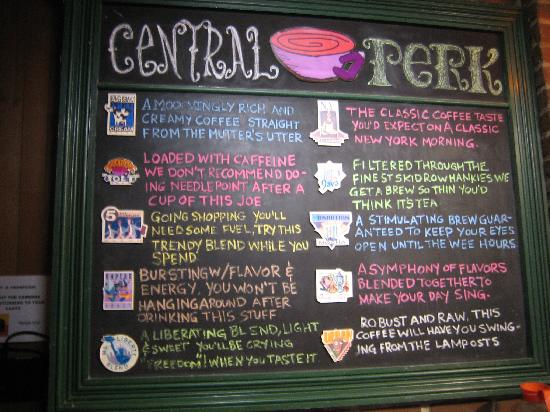 CENTRAL PERK
CREAM
A MOOOVINGLY RICH AND
CREAMY COFFEE STRAIGHT
FROM THE MUTTER'S UTTER
LOADED WITH CAFFEINE
WE DON'T RECOMMEND DO-
ING NEEDLEPOINT AFTER A
CUP OF THIS JOE
GOING SHOPPING YOU'LL
NEED SOME FUEL, TRY THIS
TRENDY BLEND WHILE YOU
SPEND
BURSTING W/FLAVOR &
ENERGY. YOU WON'T BE
HANGING AROUND AFTER
DRINKING THIS STUFF
A LIBERATING BLEND, LIGHT
& SWEET YOU'LL BE CRYING
"FREEDOM"! WHEN YOU TASTE IT.
THE CLASSIC COFFEE TASTE
YOU'D EXPECT ON A CLASSIC
NEW YORK MORNING.
Java
FILTERED THROUGH THE
FINEST SKID ROW HANKIES WE
GET A BREW SO THIN YOU'D
THINK IT'S TEA
A STIMULATING BREW GUAR-
ANTEED TO KEEP YOUR EYES
OPEN UNTIL THE WEE HOURS
A SYMPHONY OF FLAVORS
BLENDED TOGETHER TO
MAKE YOUR DAY SING.
ROBUST AND RAW, THIS
COFFEE WILL HAVE YOU SWING-
ING FROM THE LAMPOSTS